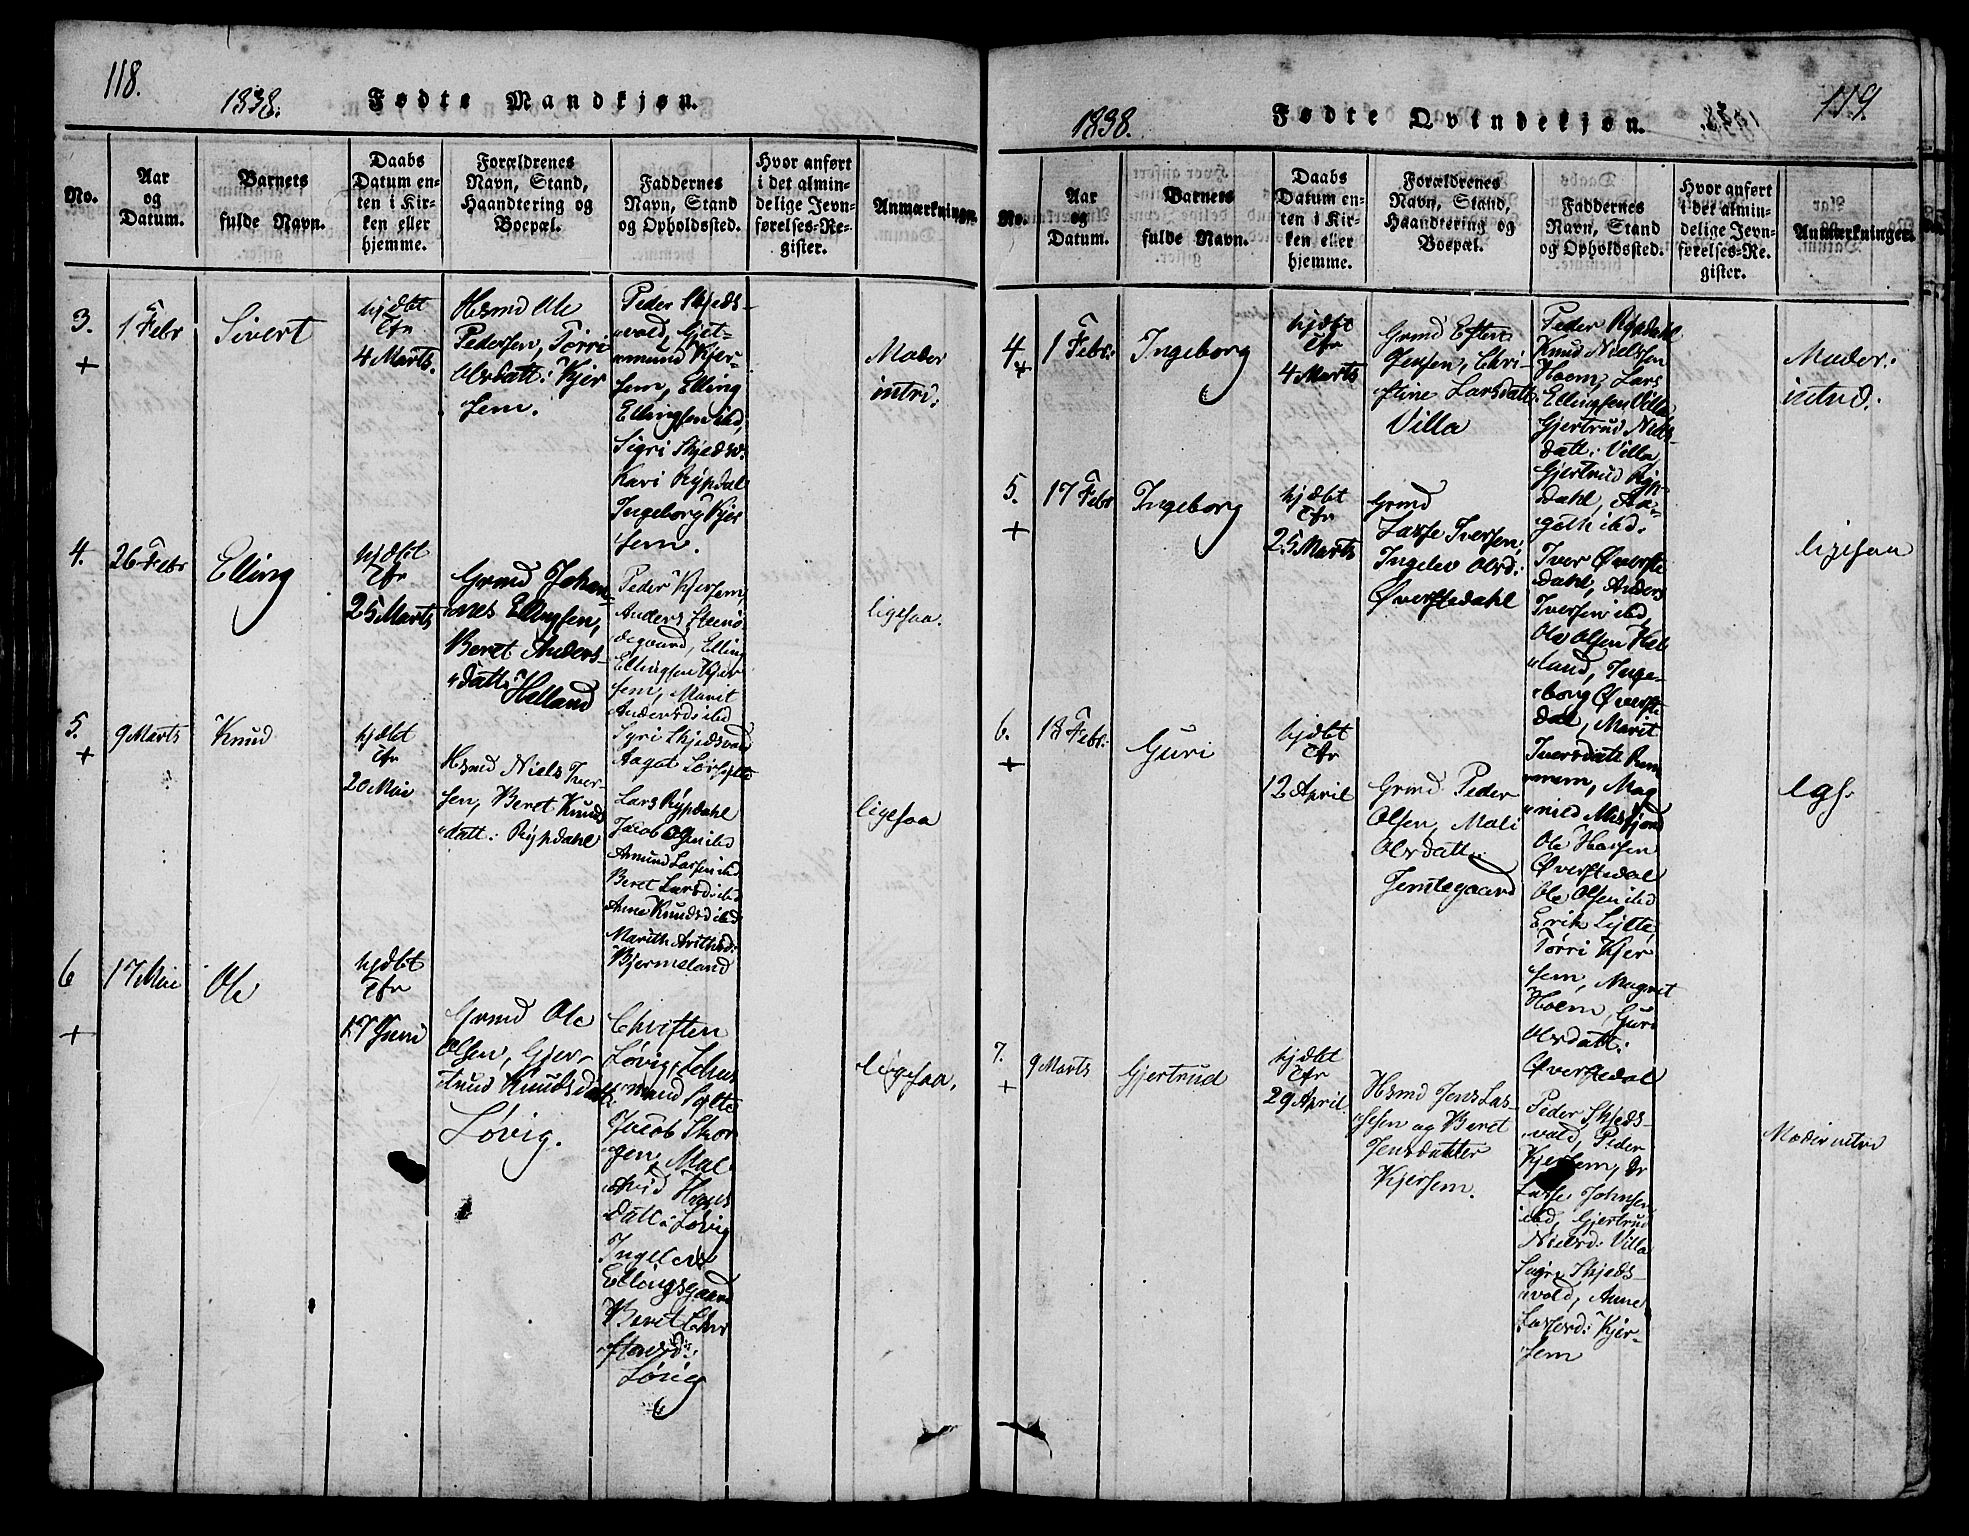 118.
1838.
Fødte Mandkjøn.
No.
Aar
og
Datum.
Barnets
fulde Navn.
Daabs
Datum en-
ten i Kir-
ken eller
hjemme.
Forældrenes
Navn, Stand,
Haandtering og
Boepæl.
Faddernes
Navn, Stand
og Opholdssted.
Hvor anført
i det almin-
delige Jevn-
førelses-Re-
gister.
Anmærkninger.
3.
+
1 Febr
Sivert
hjdbt
Cfr
4 Marts.
Hsmd Ole
Pedersen, Tørri
Olsdatt: Kjer
sem.
Peder Skjeds-
vold,
mund Kjer-
sem, Elling
Ellingsen ibd,
Sigri Skjedsv.
Kari Rypdal
Ingeborg Kjer
sem.
Moder
intrd:
4.
26 Febr
Elling
hjdbt
Cfr
25 Marts
Grmd Johan-
nes Ellingsen,
Beret Anders-
datt: Helland
Peder Kjersem
Anders
degaard, Elling
Ellingsen Kjer
sem, Marit
Andersd: ibd
Syri Skjedsvold
Aagot
ligesaa.
5.
+
9 Marts
Knud
hjdbt
Cfr
20 Mai
Hsmd Niels Iver-
sen, Beret Knuds
datt: Rypdahl
Lars Rypdahl
Jacob ibd
Amund Larsen ibd
Beret Larsd: ibd
Anne Knudsd ibd
Marith
Bjermeland
ligesaa
6
+
17 Mai
Ole
hjdbt
Cfr
17 Juni
Grmd Ole
Olsen, Gjer-
trud Knudsdatt:
Løvig.
Christen
Løvig,
mund Sylte
Jacob Skor
gen, Mal
Hans
datt: Løvig
Ellingsgaard
Beret Chri
Løvig
ligesaa.
119.
1838.
Fødte Qvindekjøn.
No.
Aar
og
Datum.
Barnets
fulde Navn.
Daabs
Datum en-
ten i Kir-
ken eller
hjemme.
Forældrenes
Navn, Stand,
Haandtering og
Boepæl.
Faddernes
Navn, Stand
og Opholdssted.
Hvor anført
i det almin-
delige Jevn-
førelses-Re-
gister.
Anmærkninger.
4.
+
1 Febr:
Ingeborg
hjdbt
Cfr
4 Marts
Grmd Esten
Jensen, Chri-
stine Larsdatt:
Villa
Peder Rypdahl
Knud Nielsen
Hoem, Lars
Ellingsen Villa
Gjertrud Niels-
datt: Villa
Gjertrud Ryp-
dahl, Aa-
goth ibd.
Moder:
intrd:
5.
+
17 Febr
Ingeborg
hjdbt
Cfr
25 Marts
Grmd
Lasse Iversen,
Ingelev Olsd:
Øverstedahl
Iver Øverste
dahl, Anders
Iversen ibd,
Ole Olsen Hel
land, Inge-
borg Øverste
dal, Marit
Iversdatt Rem
mem, Mag
nild Misfjord
ligesaa
6.
+
18 Febr:
Guri
hjdbt
Cfr
12 April
Grmd Peder
Olsen, Mali
Olsdatt:
Jemtegaard
Ole Hansen
Øverstedal
Ole Olsen ibd
Erik Sylte,
Tørri Kjer
sem, Magret
Hoem, Guri
Olsdatt:
Øverstedal
lgs.
7.
+
9 Marts
Gjertrud
hjdbt
Cfr
29 April
Hsmd Jens Las-
sesen og Beret
Jensdatter
Kjersem.
Peder Skjeds-
vold, Peder
Kjersem,
Lasse Johnsen
ibd, Gjertrud
Nielsd: Villa
Sigri Skjeds-
vold, Anne
Lassesd: Kjer-
sem
Moder intrd